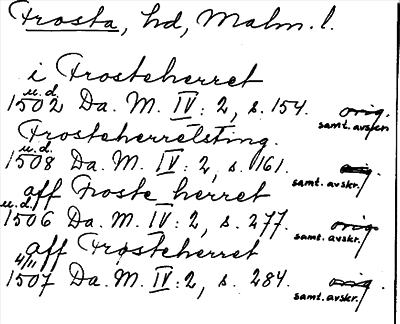 Frosta, hd, Malm. l.
i Frosteherret
u.d.
1502 Da. M. IV: 2, s. 154. orig.
samt. avskr.
Frosteherretsting.
u.d.
1508 Da. M. IV: 2, s. 161. orig.
samt. avskr.
aff Froste herret
u.d.
1506 Da. M. IV: 2, s. 277. orig.
samt. avskr.
aff Frøsteherret
4/11
1507 Da. M. IV: 2, s. 284. orig.
samt. avskr.